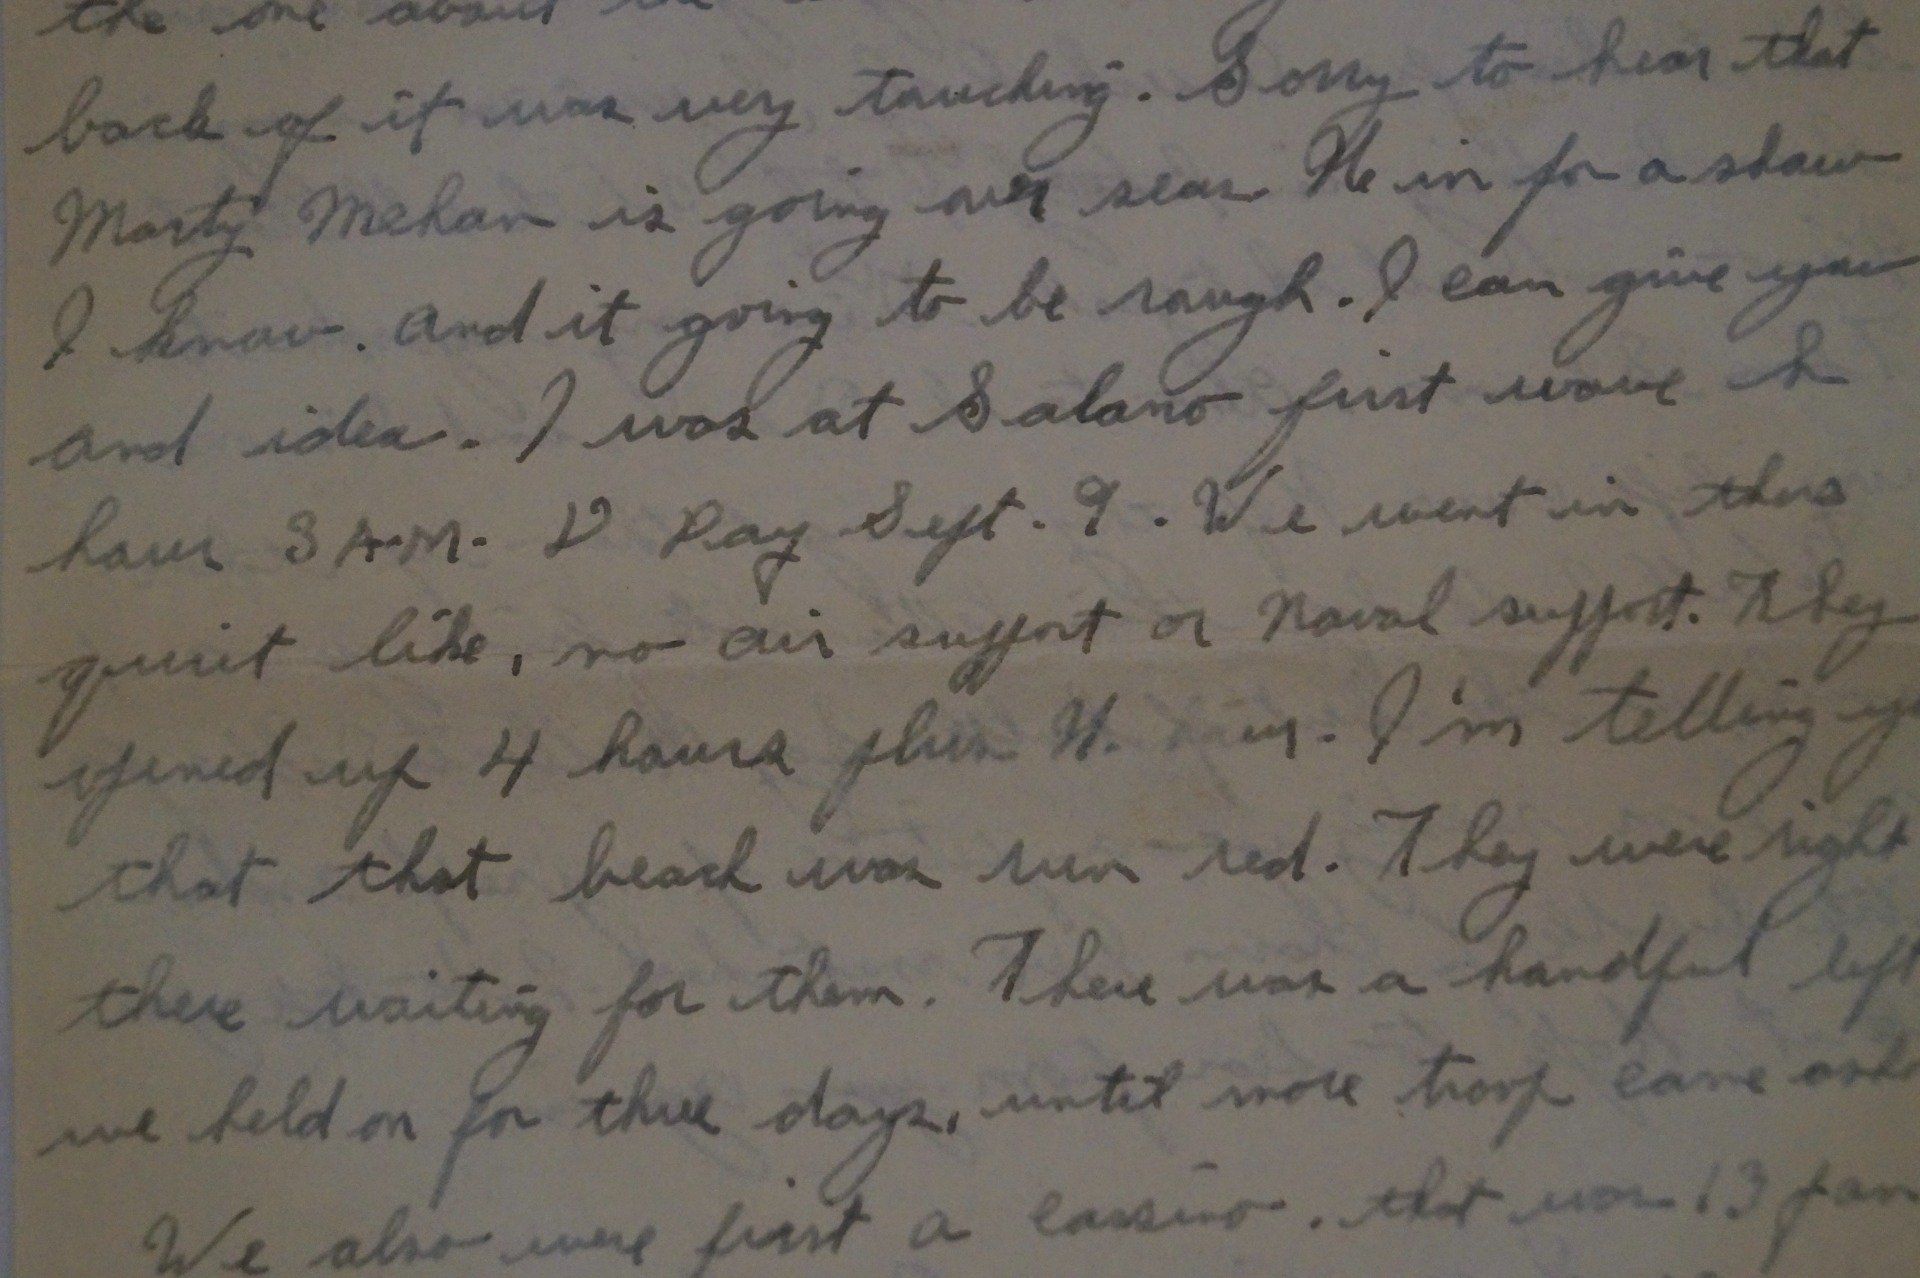 the one about the
back of it was very touching. Sorry to hear that
Marty Mehan is going over seas. He in for a show
I know. And it going to be rough. I can give you
and idea. I was at Salano first wave h
hour 3 A.M. D Day Sept. 9. We went in there
quiit like, no air support or Naval support. They
opened up 4 hours plus H. hour. I'm telling yo
that that beach was run red. They were right
there waiting for them. There was a handful left
we held on for three days, until more troop came
We also were first a cassino. that was 13 Jan